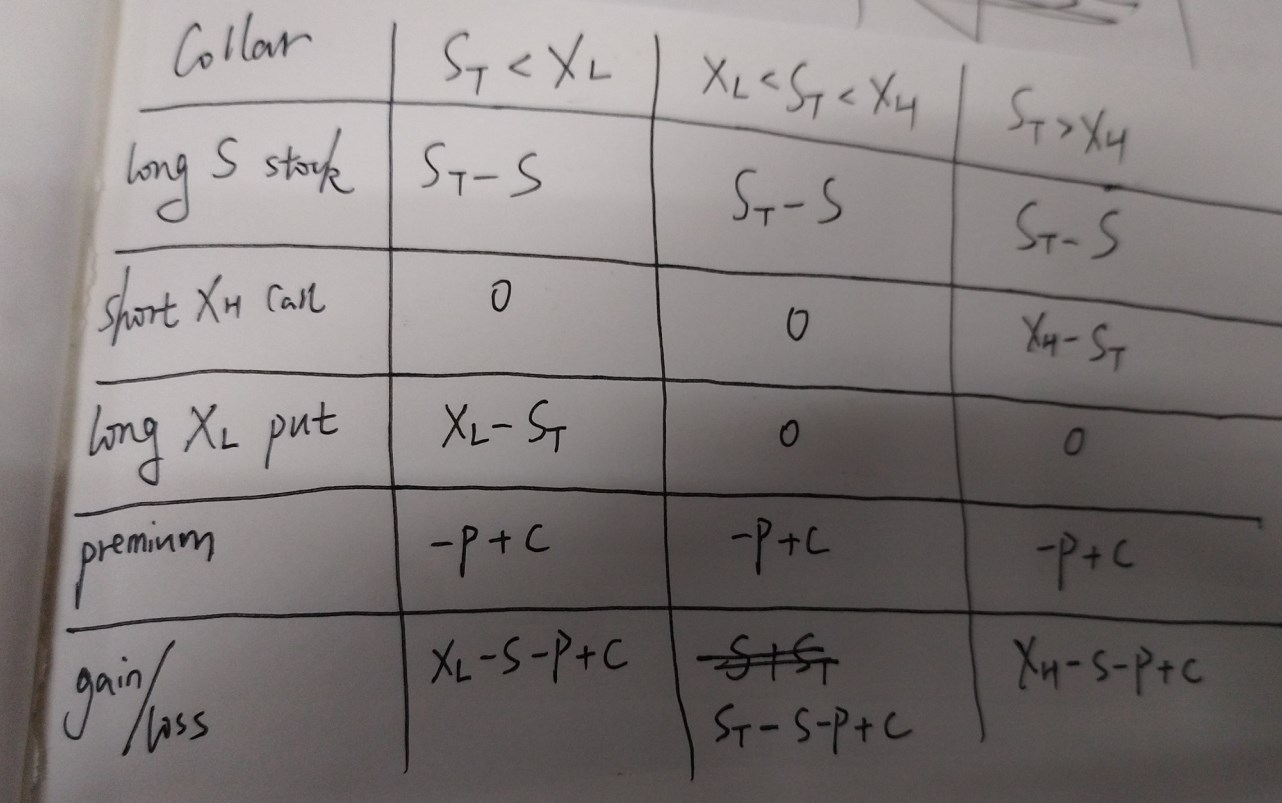 Collar | S_T < X_L | X_L < S_T < X_H | S_T > X_H
long S stock | S_T - S | S_T - S | S_T - S
short X_H call | 0 | 0 | X_H - S_T
long X_L put | X_L - S_T | 0 | 0
premium | -P + C | -P + C | -P + C
gain/loss | X_L - S - P + C | S_T - S - P + C | X_H - S - P + C